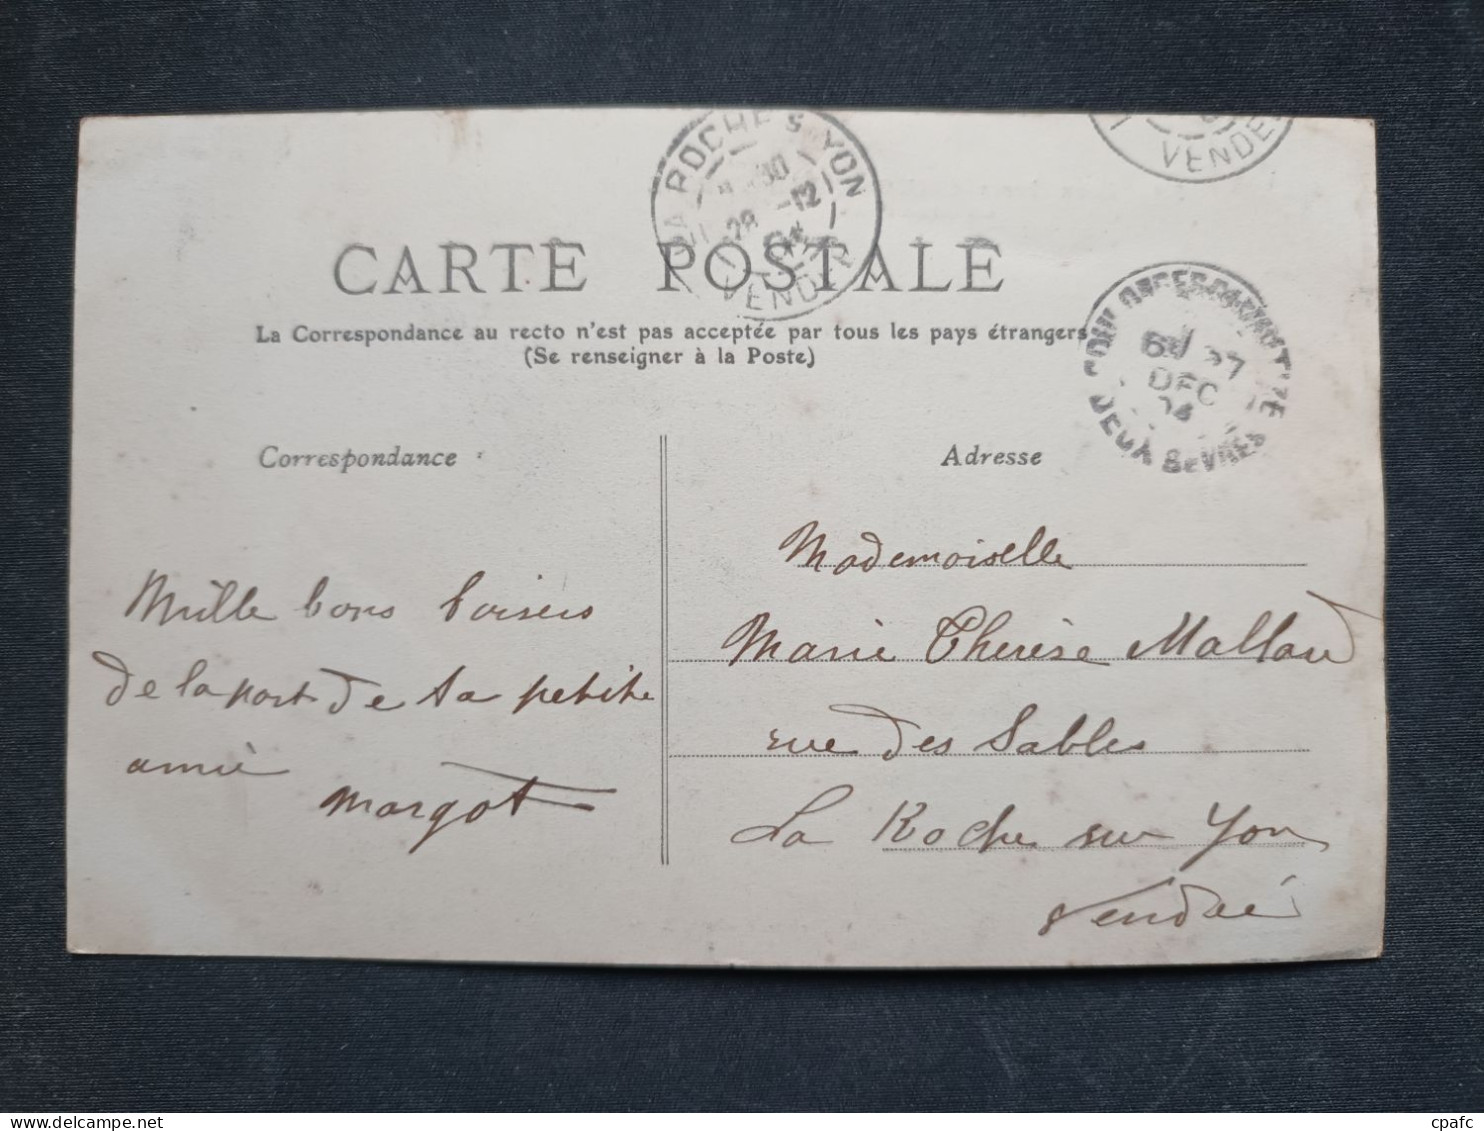 LA ROCHE S YON
28 -12
VENDÉE
VENDÉE
CARTE POSTALE
La Correspondance au recto n'est pas acceptée par tous les pays étrangers
(Se renseigner à la Poste)
DEC
04
DEUX SEVRES
Correspondance
Adresse
Mille bons baisers
de la part de ta petite
amie
Margot
Mademoiselle
Marie Thérèse Mallard
rue des Sables
La Roche sur Yon
Vendée
delcampe.net
cpafc